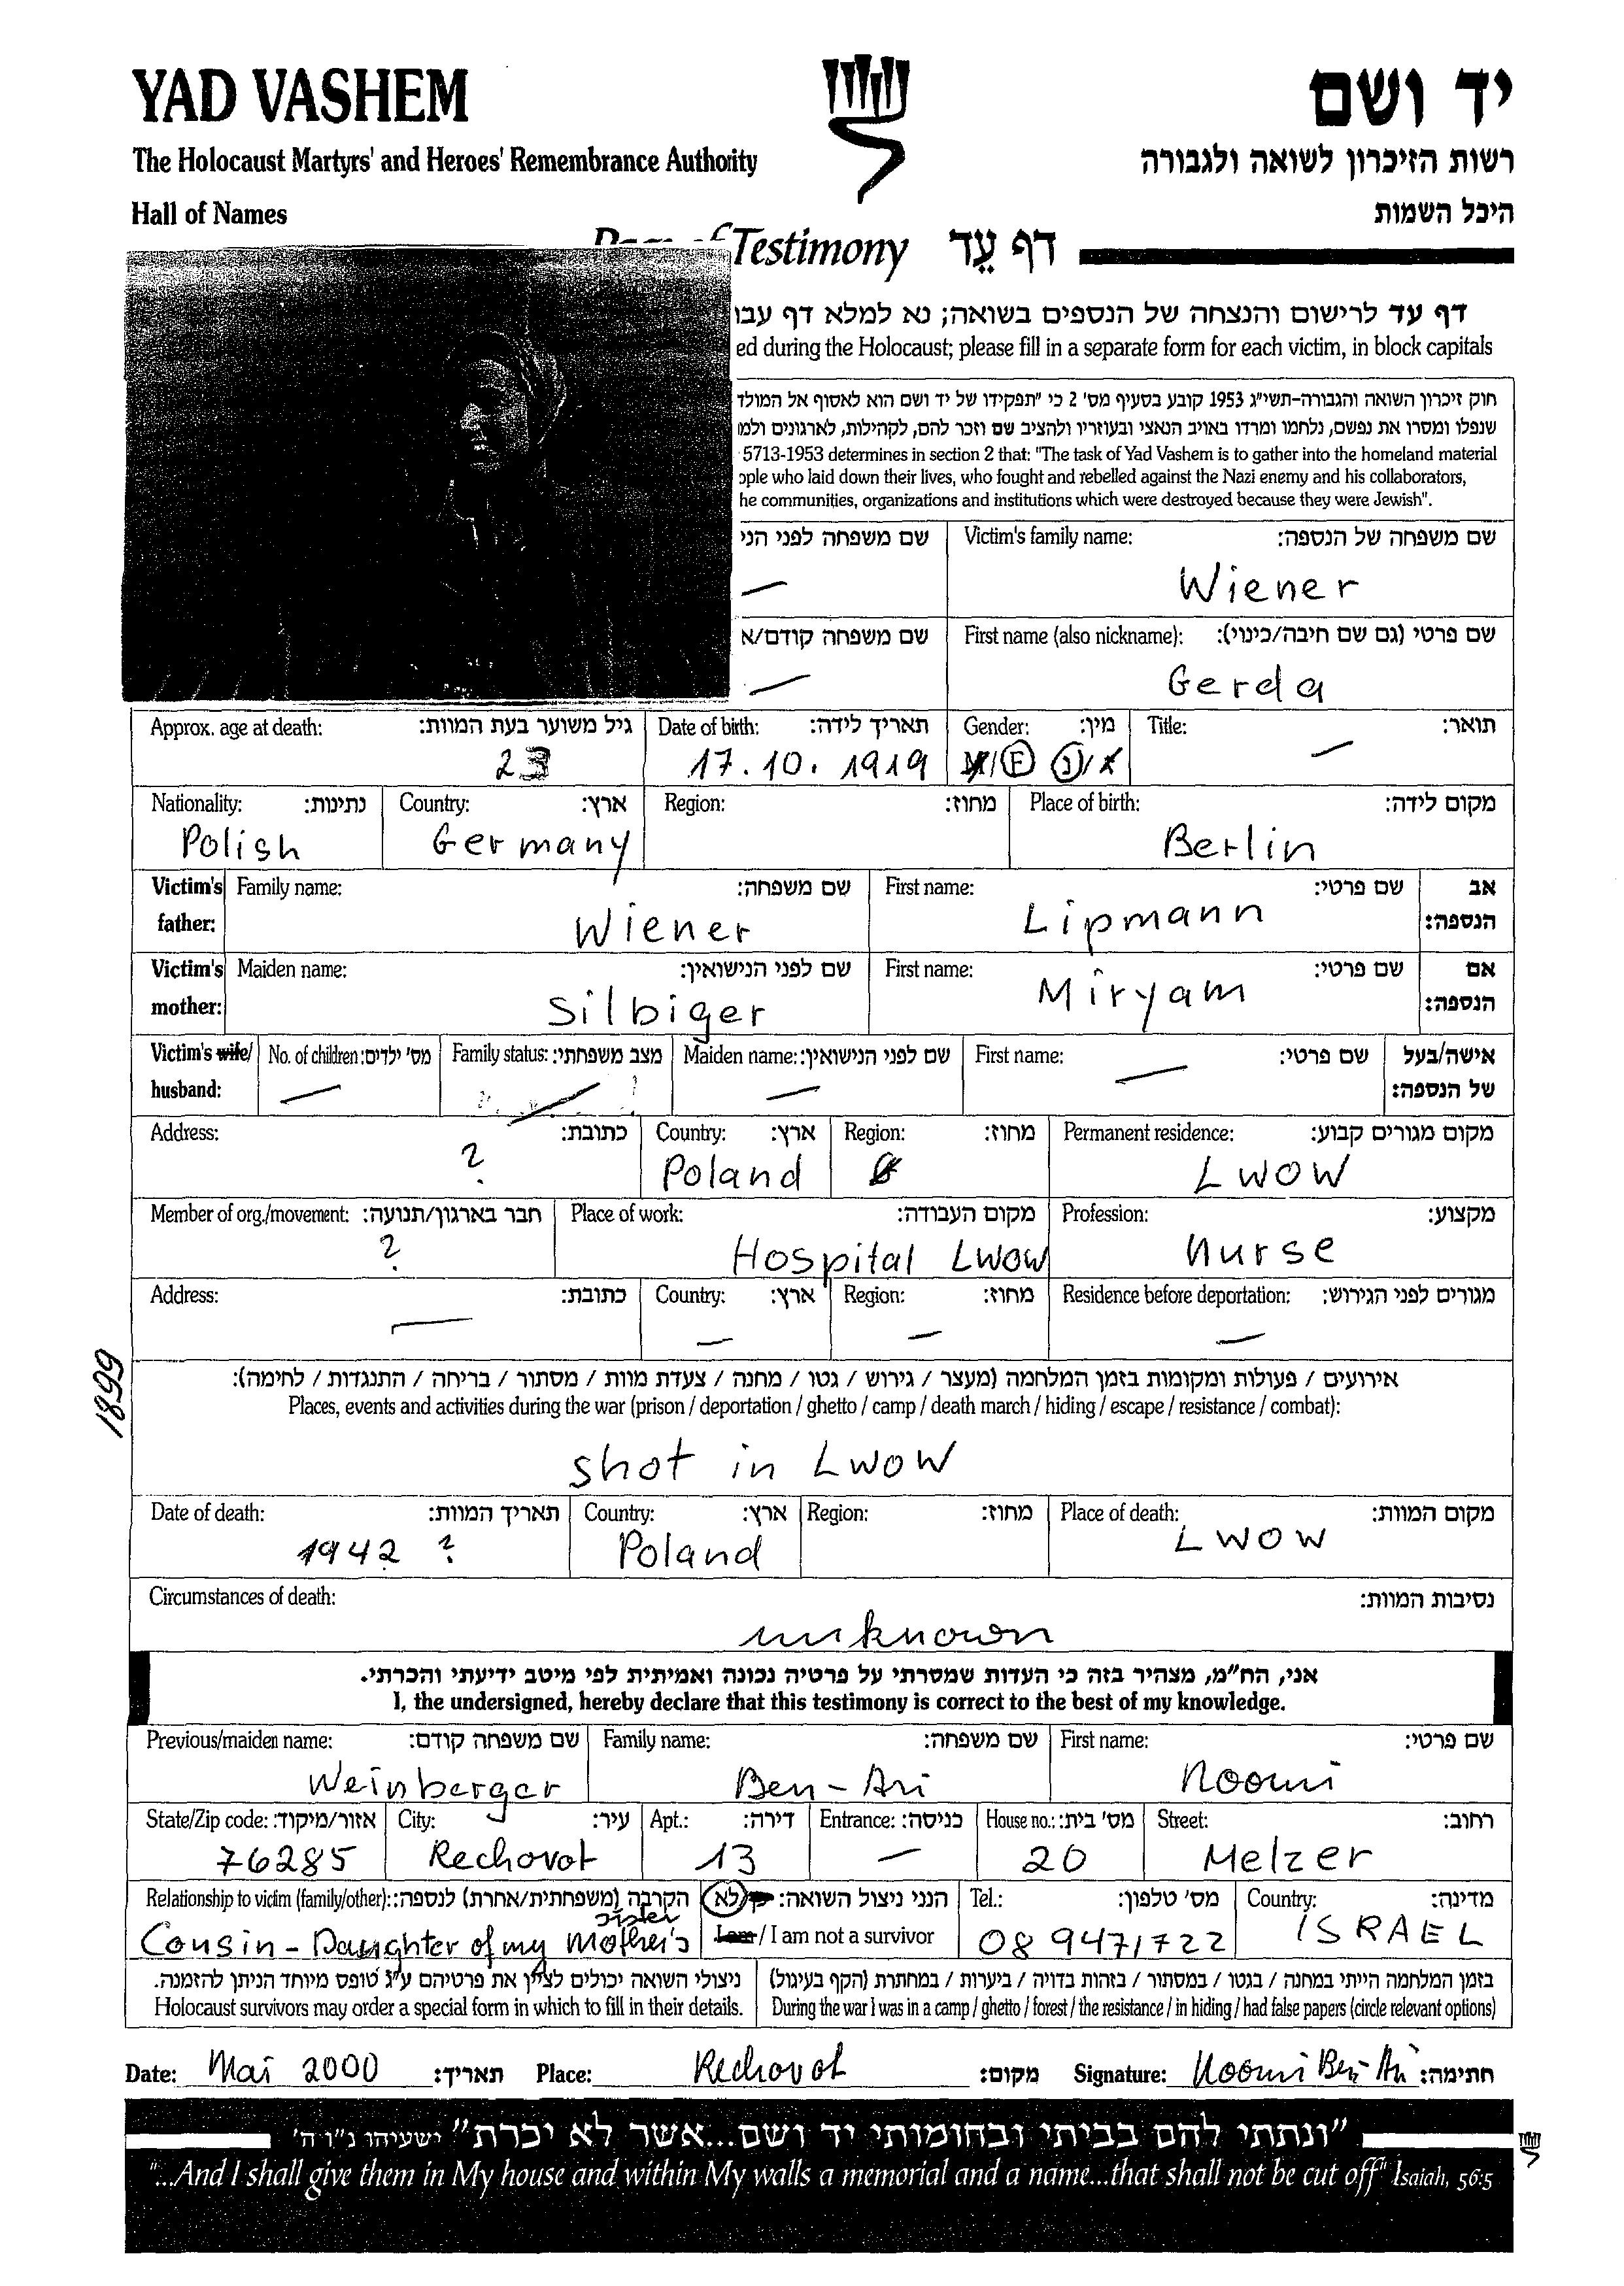 YAD VASHEM
יד ושם
The Holocaust Martyrs' and Heroes' Remembrance Authority
רשות הזיכרון לשואה ולגבורה
Hall of Names
היכל השמות
Testimony דף עֵד
דף עד לרישום והנצחה של הנספים בשואה; נא למלא דף עבו
ed during the Holocaust; please fill in a separate form for each victim, in block capitals
חוק זיכרון השואה והגבורה-תשי"ג 1953 קובע בסעיף מס' 2 כי "תפקידו של יד ושם הוא לאסוף אל המולד
שנפלו ומסרו את נפשם, נלחמו ומרדו באויב הנאצי ובעוזריו ולהציב שם וזכר להם, לקהילות, לארגונים ולמו
5713-1953 determines in section 2 that: "The task of Yad Vashem is to gather into the homeland material
ople who laid down their lives, who fought and rebelled against the Nazi enemy and his collaborators,
he communities, organizations and institutions which were destroyed because they were Jewish".
שם משפחה לפני הני
Victim's family name: שם משפחה של הנספה:
— Wiener
שם משפחה קודם/א
First name (also nickname): שם פרטי (גם שם חיבה/כינוי):
— Gerda
Approx. age at death: גיל משוער בעת המוות: Date of birth: תאריך לידה: Gender: מין: Title: תואר:
23 17.10.1919 M/F ז/נ —
Nationality: נתינות: Country: ארץ: Region: מחוז: Place of birth: מקום לידה:
Polish Germany Berlin
Victim's father: Family name: שם משפחה: First name: שם פרטי: אב הנספה:
Wiener Lipmann
Victim's mother: Maiden name: שם לפני הנישואין: First name: שם פרטי: אם הנספה:
Silbiger Miryam
Victim's wife/ husband: No. of children: מס' ילדים: Family status: מצב משפחתי: Maiden name: שם לפני הנישואין: First name: שם פרטי: אישה/בעל של הנספה:
— — — —
Address: כתובת: Country: ארץ: Region: מחוז: Permanent residence: מקום מגורים קבוע:
? Poland LWOW
Member of org./movement: חבר בארגון/תנועה: Place of work: מקום העבודה: Profession: מקצוע:
? Hospital LWOW Nurse
Address: כתובת: Country: ארץ: Region: מחוז: Residence before deportation: מגורים לפני הגירוש:
— — — —
1899
אירועים / פעולות ומקומות בזמן המלחמה (מעצר / גירוש / גטו / מחנה / צעדת מוות / מסתור / בריחה / התנגדות / לחימה):
Places, events and activities during the war (prison / deportation / ghetto / camp / death march / hiding / escape / resistance / combat):
shot in LWOW
Date of death: תאריך המוות: Country: ארץ: Region: מחוז: Place of death: מקום המוות:
1942 ? Poland LWOW
Circumstances of death: נסיבות המוות:
unknown
אני, הח"מ, מצהיר בזה כי העדות שמסרתי על פרטיה נכונה ואמיתית לפי מיטב ידיעתי והכרתי.
I, the undersigned, hereby declare that this testimony is correct to the best of my knowledge.
Previous/maiden name: שם משפחה קודם: Family name: שם משפחה: First name: שם פרטי:
Weinberger Ben-Ari Noomi
State/Zip code: אזור/מיקוד: City: עיר: Apt.: דירה: Entrance: כניסה: House no.: מס' בית: Street: רחוב:
76285 Rechovot 13 — 20 Melzer
Relationship to victim (family/other): הקרבה (משפחתית/אחרת) לנספה: הנני ניצול השואה: כן/לא Tel.: מס' טלפון: Country: מדינה:
Cousin - Daughter of my Mother's sister I am / I am not a survivor 08 9471722 ISRAEL
ניצולי השואה יכולים לציין את פרטיהם ע"ג טופס מיוחד הניתן להזמנה.
Holocaust survivors may order a special form in which to fill in their details.
בזמן המלחמה הייתי במחנה / בגטו / במסתור / בזהות בדויה / ביערות / במחתרת (הקף בעיגול)
During the war I was in a camp / ghetto / forest / the resistance / in hiding / had false papers (circle relevant options)
Date: Mai 2000 תאריך: Place: Rechovot מקום: Signature: Noomi Ben-Ari חתימה:
"ונתתי להם בביתי ובחומותי יד ושם...אשר לא יכרת" ישעיהו נ"ו ה'
"...And I shall give them in My house and within My walls a memorial and a name...that shall not be cut off" Isaiah, 56:5